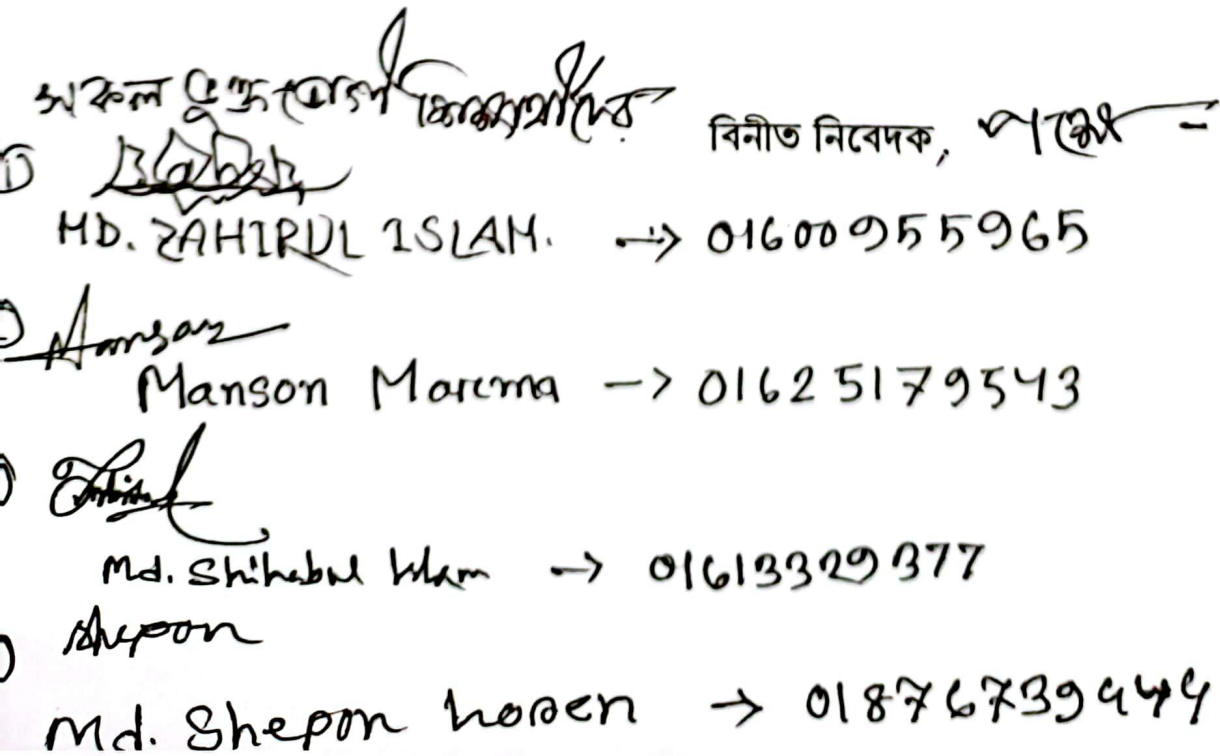 সকল ভুক্তভোগী শিক্ষার্থীদের
বিনীত নিবেদক, পক্ষে -
①
MD. ZAHIRUL ISLAM. → 01600955965
Manson Marma → 01625179543
Md. Shihabul Islam → 01613329377
Shepon
Md. Shepon hosen → 01876739444